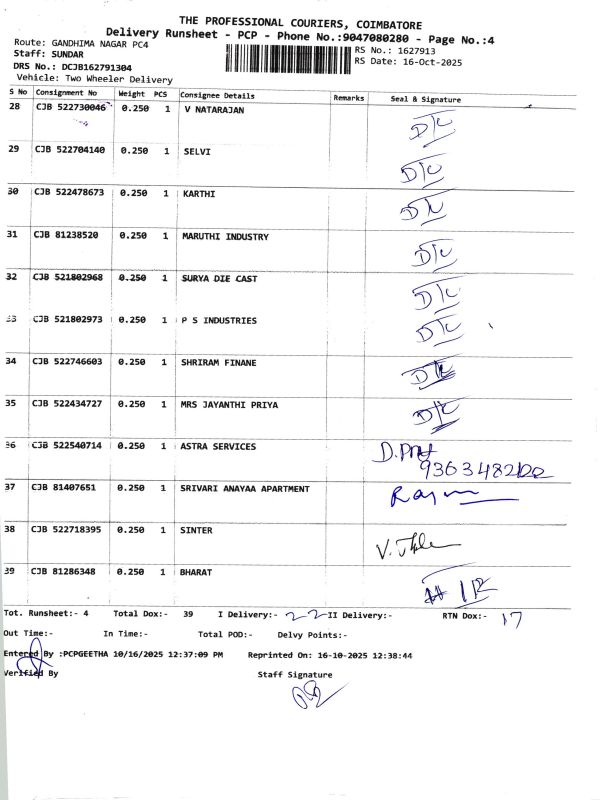 THE PROFESSIONAL COURIERS, COIMBATORE
Delivery Runsheet - PCP - Phone No.:9047080280 - Page No.:4
Route: GANDHIMA NAGAR PC4
RS No.: 1627913
Staff: SUNDAR
RS Date: 16-Oct-2025
DRS No.: DCJB162791304
Vehicle: Two Wheeler Delivery
S No Consignment No Weight PCS Consignee Details Remarks Seal & Signature
28 CJB 522730046 0.250 1 V NATARAJAN D/L
29 CJB 522704140 0.250 1 SELVI D/L
30 CJB 522478673 0.250 1 KARTHI D/L
31 CJB 81238520 0.250 1 MARUTHI INDUSTRY D/L
32 CJB 521802968 0.250 1 SURYA DIE CAST D/L
33 CJB 521802973 0.250 1 P S INDUSTRIES D/L
34 CJB 522746603 0.250 1 SHRIRAM FINANE D/L
35 CJB 522434727 0.250 1 MRS JAYANTHI PRIYA D/L
36 CJB 522540714 0.250 1 ASTRA SERVICES
37 CJB 81407651 0.250 1 SRIVARI ANAYAA APARTMENT
38 CJB 522718395 0.250 1 SINTER
39 CJB 81286348 0.250 1 BHARAT
Tot. Runsheet:- 4 Total Dox:- 39 I Delivery:- 22 II Delivery:- RTN Dox:- 17
Out Time:- In Time:- Total POD:- Delvy Points:-
Entered By :PCPGEETHA 10/16/2025 12:37:09 PM Reprinted On: 16-10-2025 12:38:44
Verified By Staff Signature